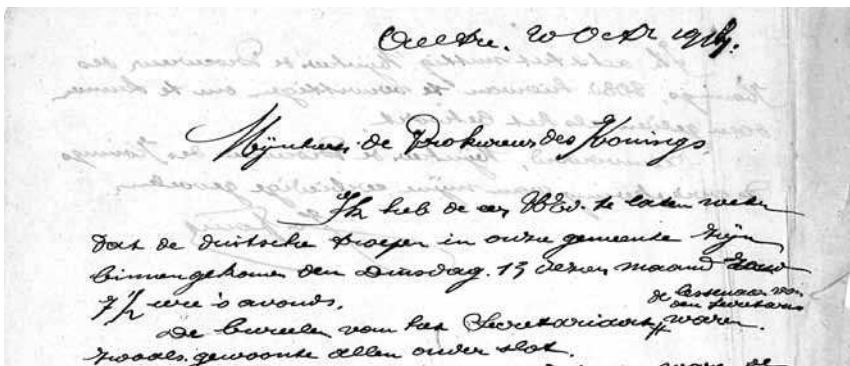 Aeltre. 20 Octr 1914.
Mijnheer de Prokureur des Konings,
Ik heb de eer UEd. te laten weten
dat de duitsche troepen in onze gemeente zijn
binnengekomen den dinsdag. 13 dezer maand
7 1/2 ure 's avonds.
de lessenaar van
den Secretaris
De bureelen van het Secretariaat waren
zooals gewoonte allen onder slot.